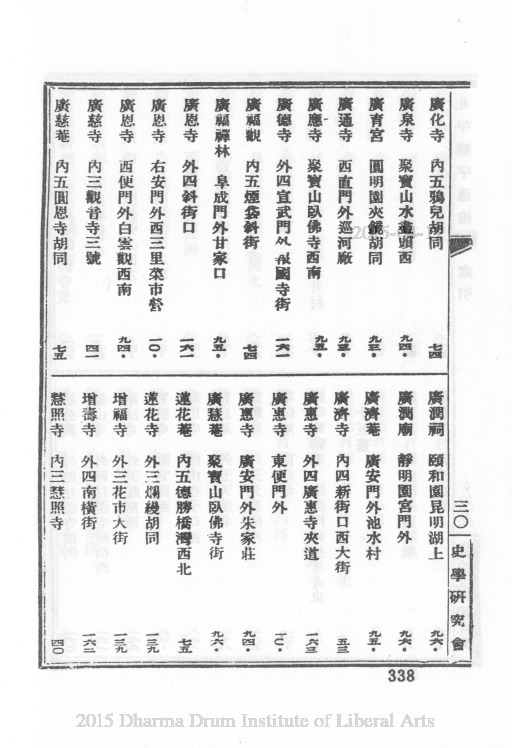 廣化寺 內五鴉兒胡同 七四
廣泉寺 聚寶山水盡頭西 九四·
廣育宮 圓明園夾鏡胡同 九三·
廣通寺 西直門外巡河廠 九三·
廣應寺 聚寶山臥佛寺西南 九五·
廣德寺 外四宣武門外報國寺街 一六一
廣福觀 內五煙袋斜街 七四
廣福禪林 阜成門外甘家口 九五·
廣恩寺 外四斜街口 一六一
廣恩寺 右安門外西三里菜市營 一〇·
廣恩寺 西便門外白雲觀西南 九四·
廣慈寺 內三觀音寺三號 四一
廣慈菴 內五圓恩寺胡同 七五
廣潤祠 頤和園昆明湖上 九六·
廣潤廟 靜明園宮門外 九六·
廣濟菴 廣安門外池水村 九五·
廣濟寺 內四新街口西大街 五三
廣惠寺 外四廣惠寺夾道 一六三
廣惠寺 東便門外 一〇·
廣惠寺 廣安門外朱家莊 九四·
廣慧菴 聚寶山臥佛寺街 九六·
蓮花菴 內五德勝橋灣西北 七五
蓮花寺 外三爛縵胡同 一三九
增福寺 外三花市大街 一三九
增壽寺 外四南橫街 一六二
慧照寺 內三慧照寺 四〇
三〇
史學研究會
338
2015 Dharma Drum Institute of Liberal Arts